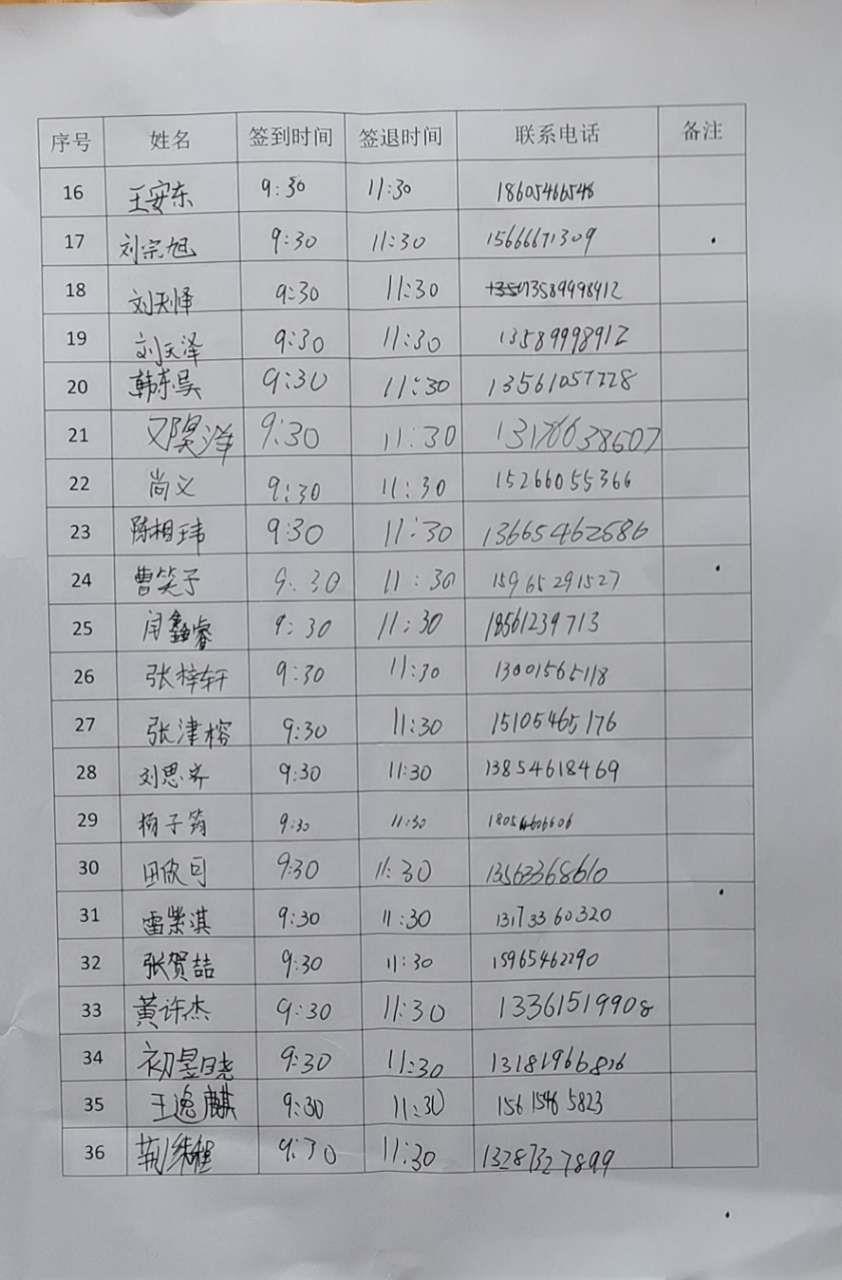 序号 姓名 签到时间 签退时间 联系电话 备注
16 王安东 9:30 11:30 18605466548
17 刘宗旭 9:30 11:30 15666671309
18 刘天怿 9:30 11:30 13589998912
19 刘天泽 9:30 11:30 13589998912
20 韩东昊 9:30 11:30 13561057728
21 邓昊泽 9:30 11:30 13176638607
22 尚义 9:30 11:30 15266055366
23 陈相玮 9:30 11:30 13665462686
24 曹笑子 9:30 11:30 15965291527
25 闫鑫睿 9:30 11:30 18561239713
26 张梓轩 9:30 11:30 13001565118
27 张津榕 9:30 11:30 15105465176
28 刘思齐 9:30 11:30 13854618469
29 杨子筠 9:30 11:30
30 田欣可 9:30 11:30 13563368610
31 雷紫淇 9:30 11:30 13173360320
32 张贺喆 9:30 11:30 15965462290
33 黄许杰 9:30 11:30 13361519908
34 初昱晓 9:30 11:30
35 王逸麒 9:30 11:30 15615465823
36 9:30 11:30 13287327899